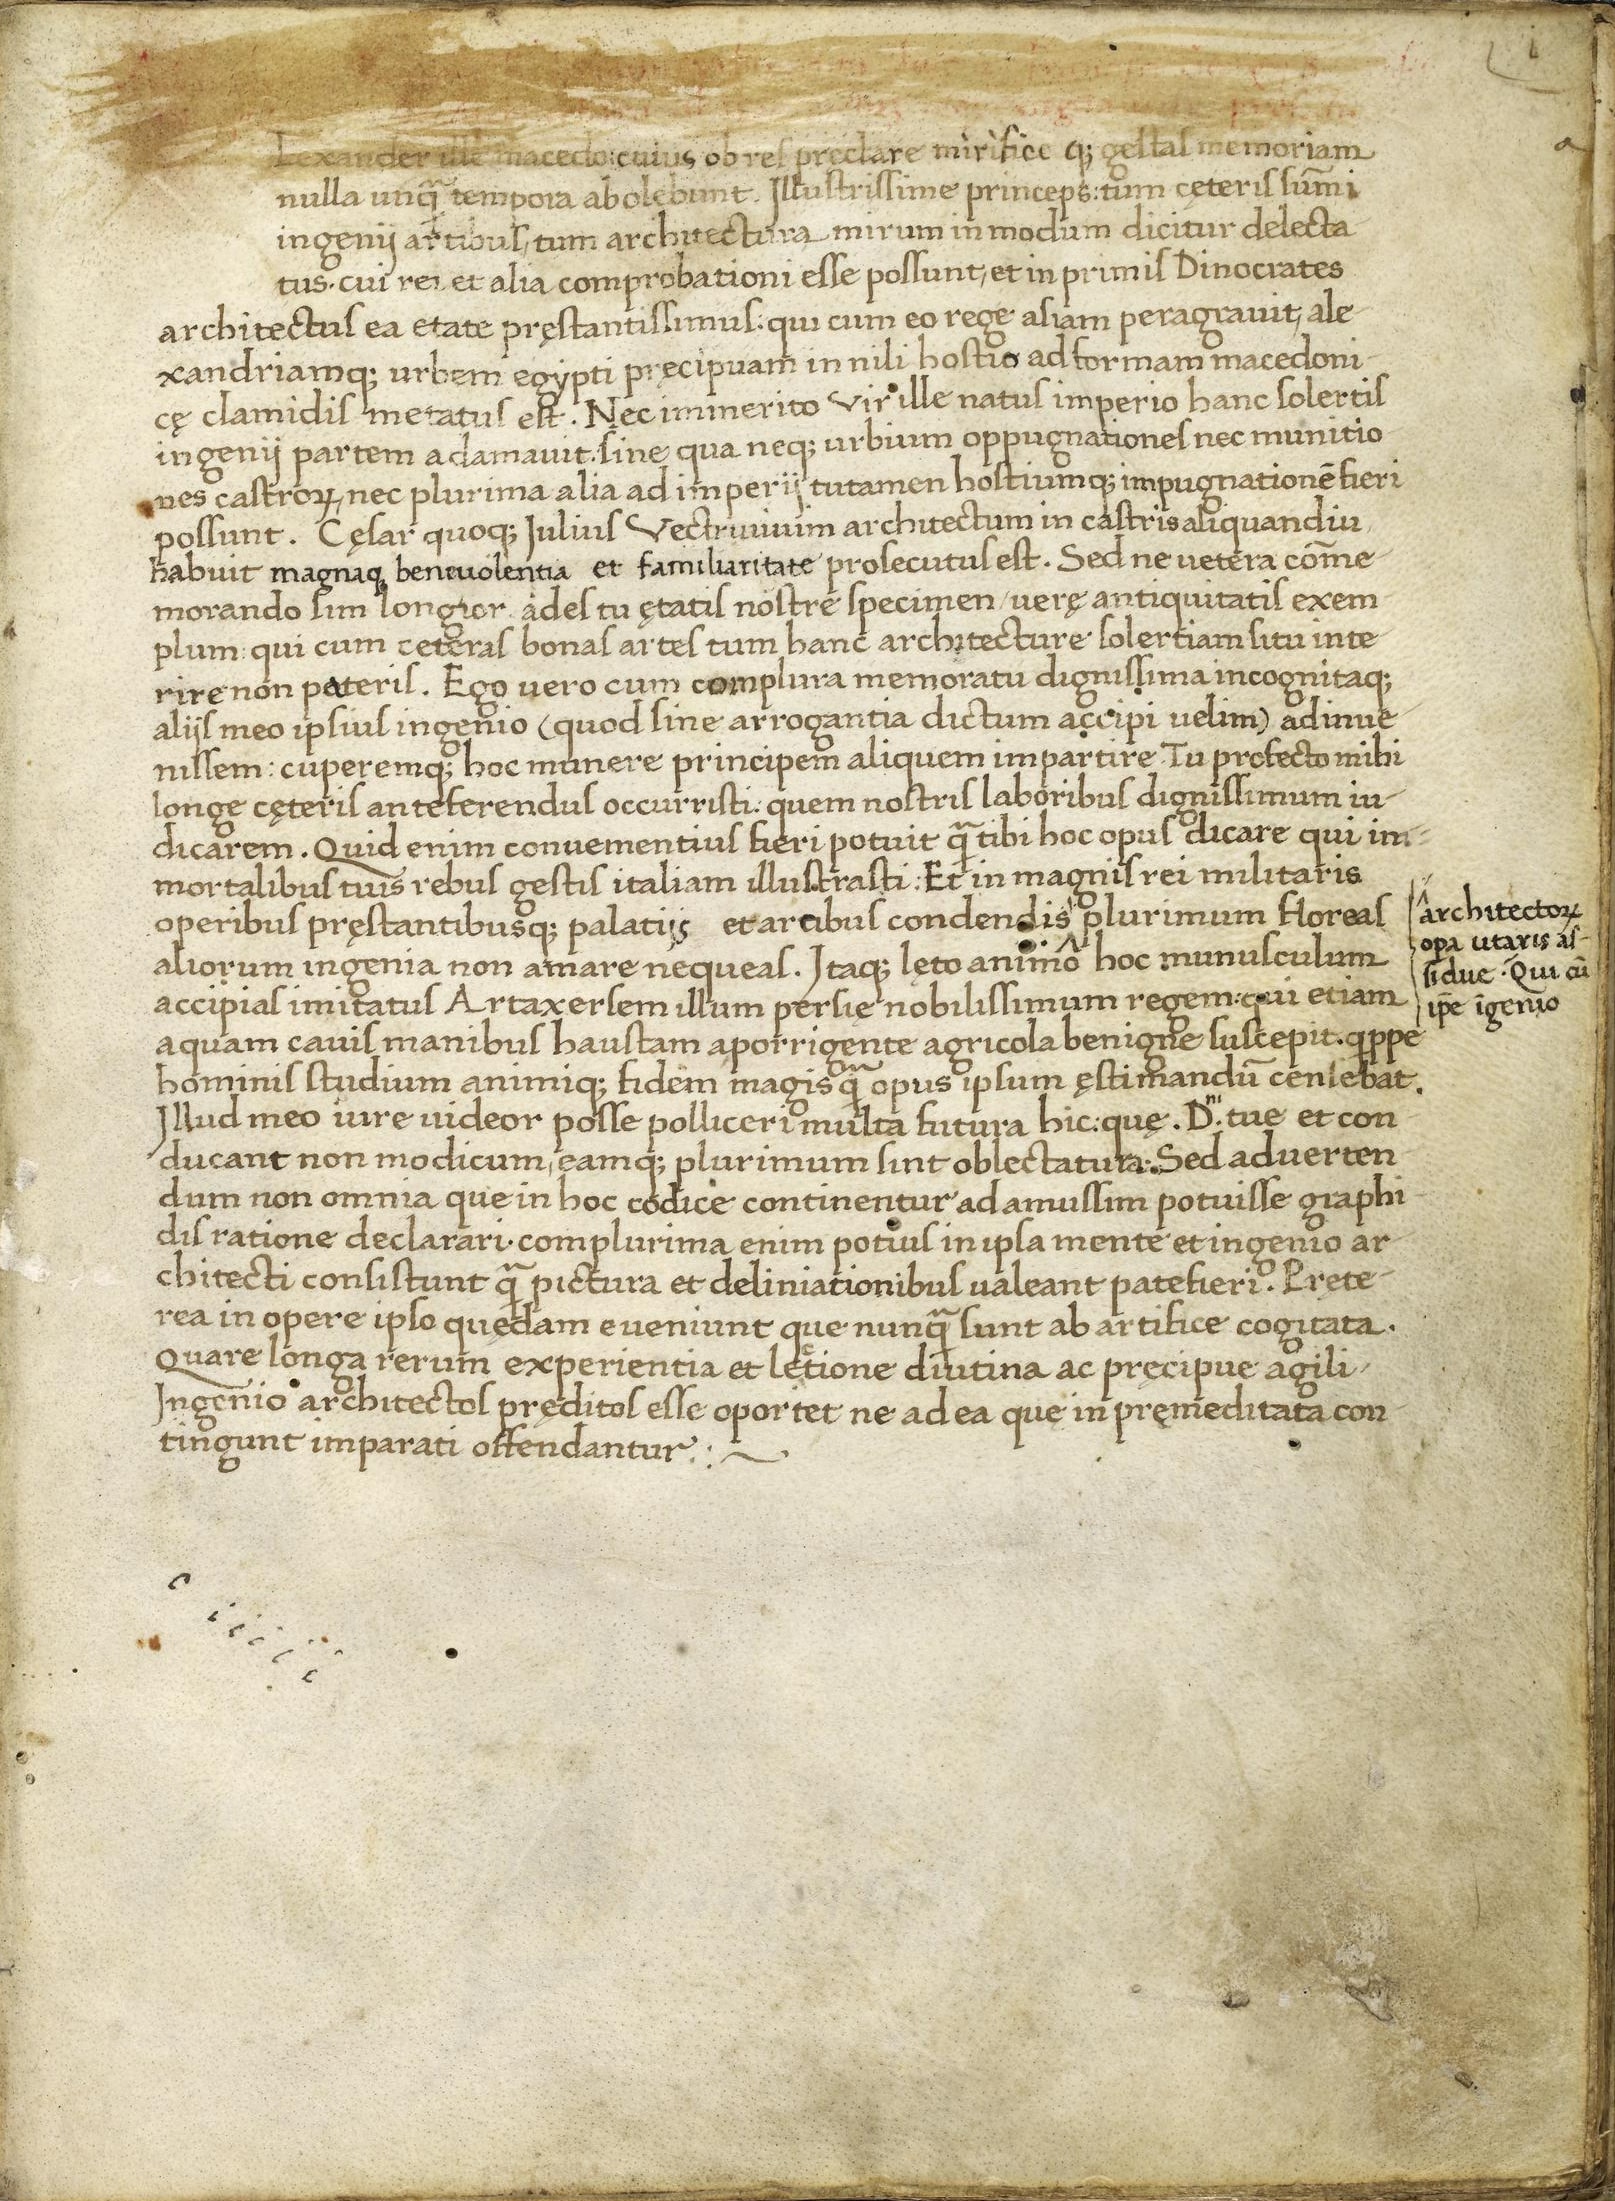 Lexander ille macedo: cuius ob res preclare mirifice q; gestas memoriam
nulla unq̃ tempora abolebunt. Illustrissime princeps: tum cęteris sūmi
ingenij artibus, tum architectura mirum in modum dicitur delecta
tus. cui rei et alia comprobationi esse possunt, et in primis Dinocrates
architectus ea etate pręstantissimus: qui cum eo rege asiam peragrauit, ale-
xandriamq; urbem egypti pręcipuam in nili hostio ad formam macedoni-
cę clamidis metatus est. Nec immerito vir ille natus imperio hanc solertis
ingenij partem adamauit. sine qua neq; urbium oppugnationes nec munitio
nes castroꝝ, nec plurima alia ad imperij tutamen hostiumq; impugnationē fieri
possunt. Cęsar quoq; Julius Vectruuium architectum in castris aliquandiu
habuit magnaq; beneuolentia et familiaritate prosecutus est. Sed ne uetera cōme-
morando sim longior. ades tu ętatis nostre specimen / uerę antiquitatis exem-
plum: qui cum ceteras bonas artes tum hanc architecture solertiam situ inte-
rire non pateris. Ego uero cum complura memoratu dignissima incognitaq;
aliis meo ipsius ingenio (quod sine arrogantia dictum accipi uelim) adinue-
nissem: cuperemq; hoc munere principem aliquem impartire. Tu profecto mihi
longe cęteris anteferendus occurristi: quem nostris laboribus dignissimum iu-
dicarem. Quid enim conuementius fieri potuit q̃ tibi hoc opus dicare qui im-
mortalibus tuis rebus gestis italiam illustrasti: Et in magnis rei militaris
operibus pręstantibusq; palatijs et artibus condendis plurimum floreas
aliorum ingenia non amare nequeas. Itaq; lęto animo ^ hoc munusculum
accipias imitatus Artaxersem illum persie nobilissimum regem: qui etiam
aquam cauis manibus haustam aporrigente agricola benigne suscepit. qppe
hominis studium animiq; fidem magis q̃ opus ipsum ęstimandū censebat.
Illud meo iure uideor posse polliceri multa futura hic: quę. D.ⁿⁱ tue et con-
ducant non modicum, eamq; plurimum sint oblectatura: Sed aduerten-
dum non omnia que in hoc codice continentur ad amussim potuisse graphi-
dis ratione declarari. complurima enim potius in ipsa mente et ingenio ar-
chitecti consistunt q̃ pictura et deliniationibus ualeant patefieri. Pręte-
rea in opere ipso quędam eueniunt que nunq̃ sunt ab artifice cogitata.
Quare longa rerum experientia et lectione diutina ac pręcipue agili
Ingenio architectos pręditos esse oportet ne ad ea quę in pręmeditata con-
tingunt imparati offendantur:
^ architectoꝝ
opa utaris as-
sidue. Qui cū
ip̄e īgenio
1
a